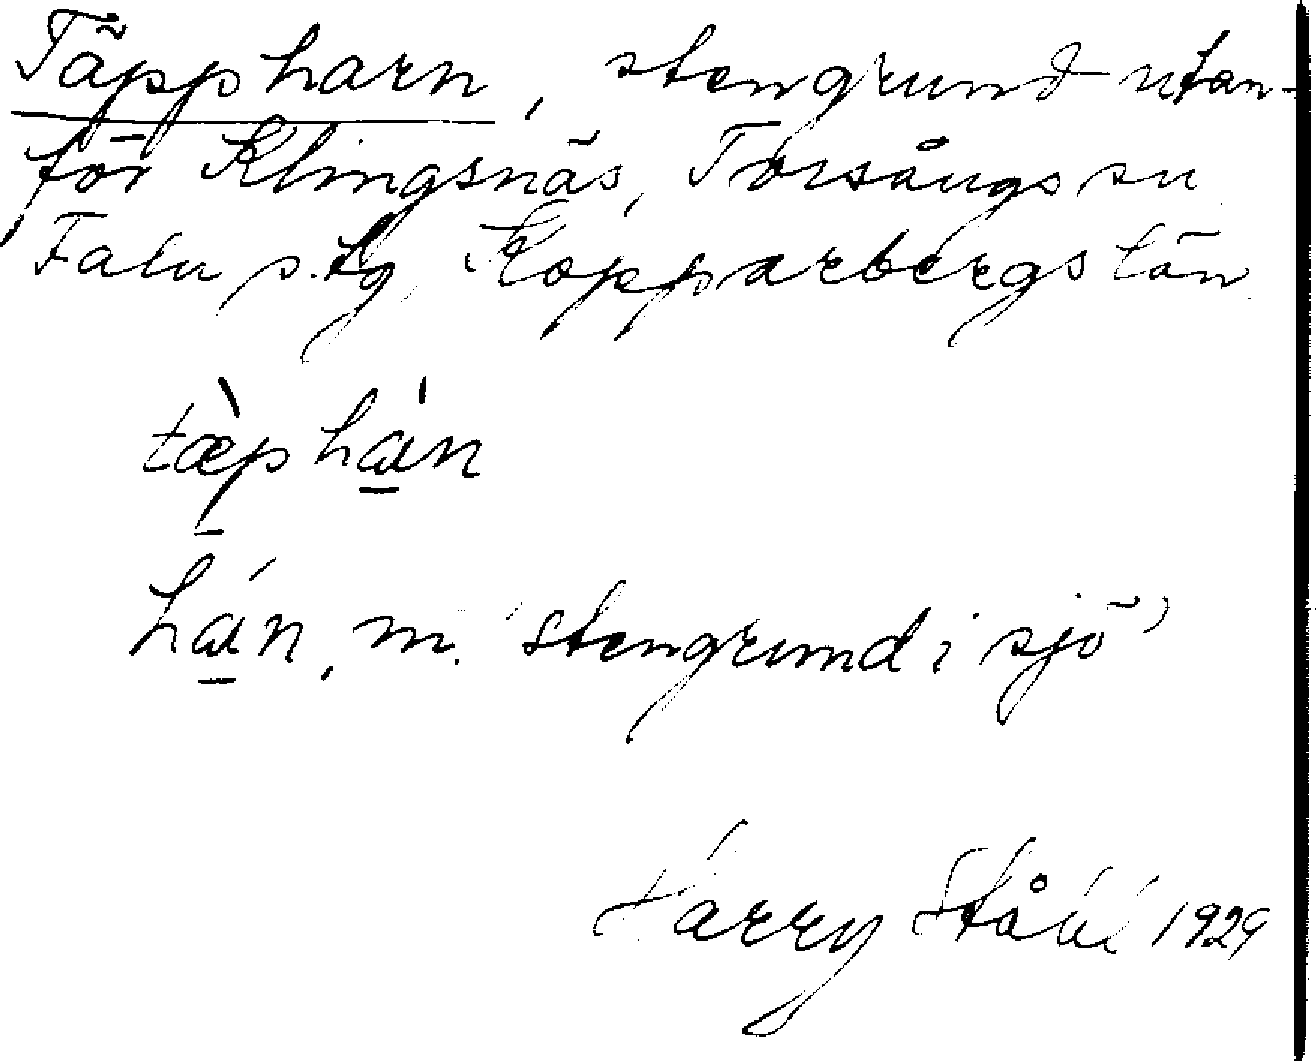 Täppharn, stengrund utan-
för Klingsnäs, Torsångs sn
Falu s.tg, Kopparbergs län
tæ̀phá̱n
há̱n, m. 'stengrund i sjö'
Harry Ståhl 1929